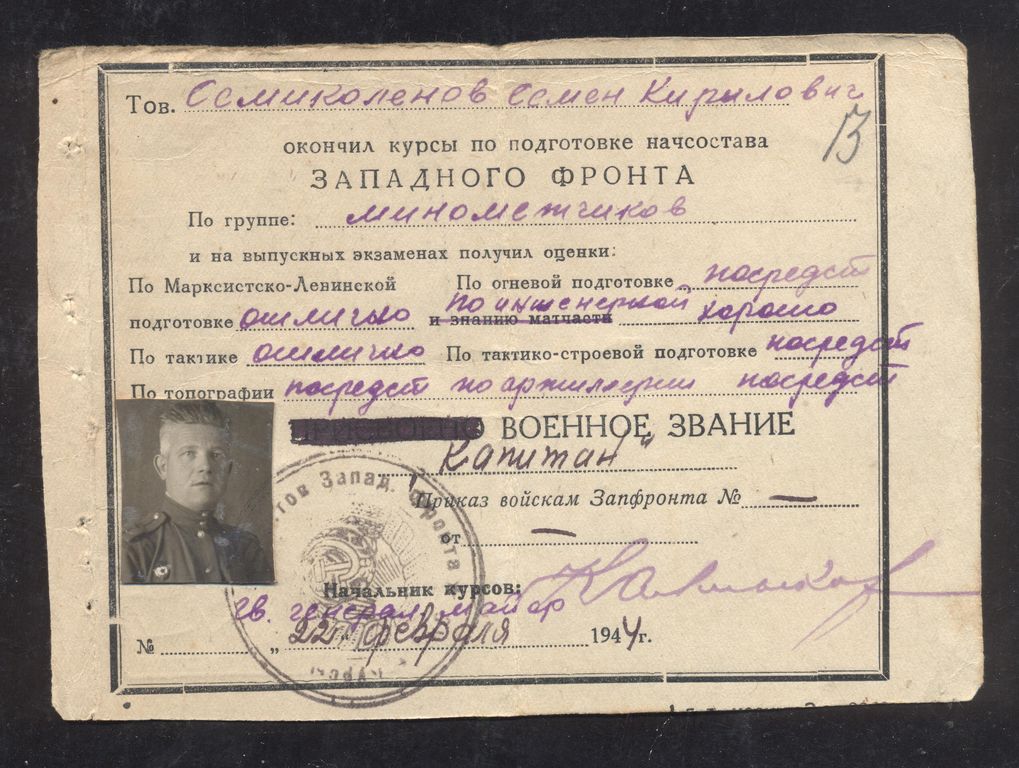 Тов. Осмиколенов Семен Кирылович
13
окончил курсы по подготовке начсостава
ЗАПАДНОГО ФРОНТА
По группе: минометчиков
и на выпускных экзаменах получил оценки:
По Марксистско-Ленинской По огневой подготовке посредст
подготовке отлично и знанию матчасти по инженерной хорошо
По тактике отлично По тактико-строевой подготовке посредст
По топографии посредст по артиллерии посредст
ПРИСВОЕНО ВОЕННОЕ ЗВАНИЕ
Капитан"
Приказ войскам Запфронта № —
от —
Начальник курсов:
гв. генерал майор
№ „22" февраля 1944 г.
Запад. Фронта
Курсы